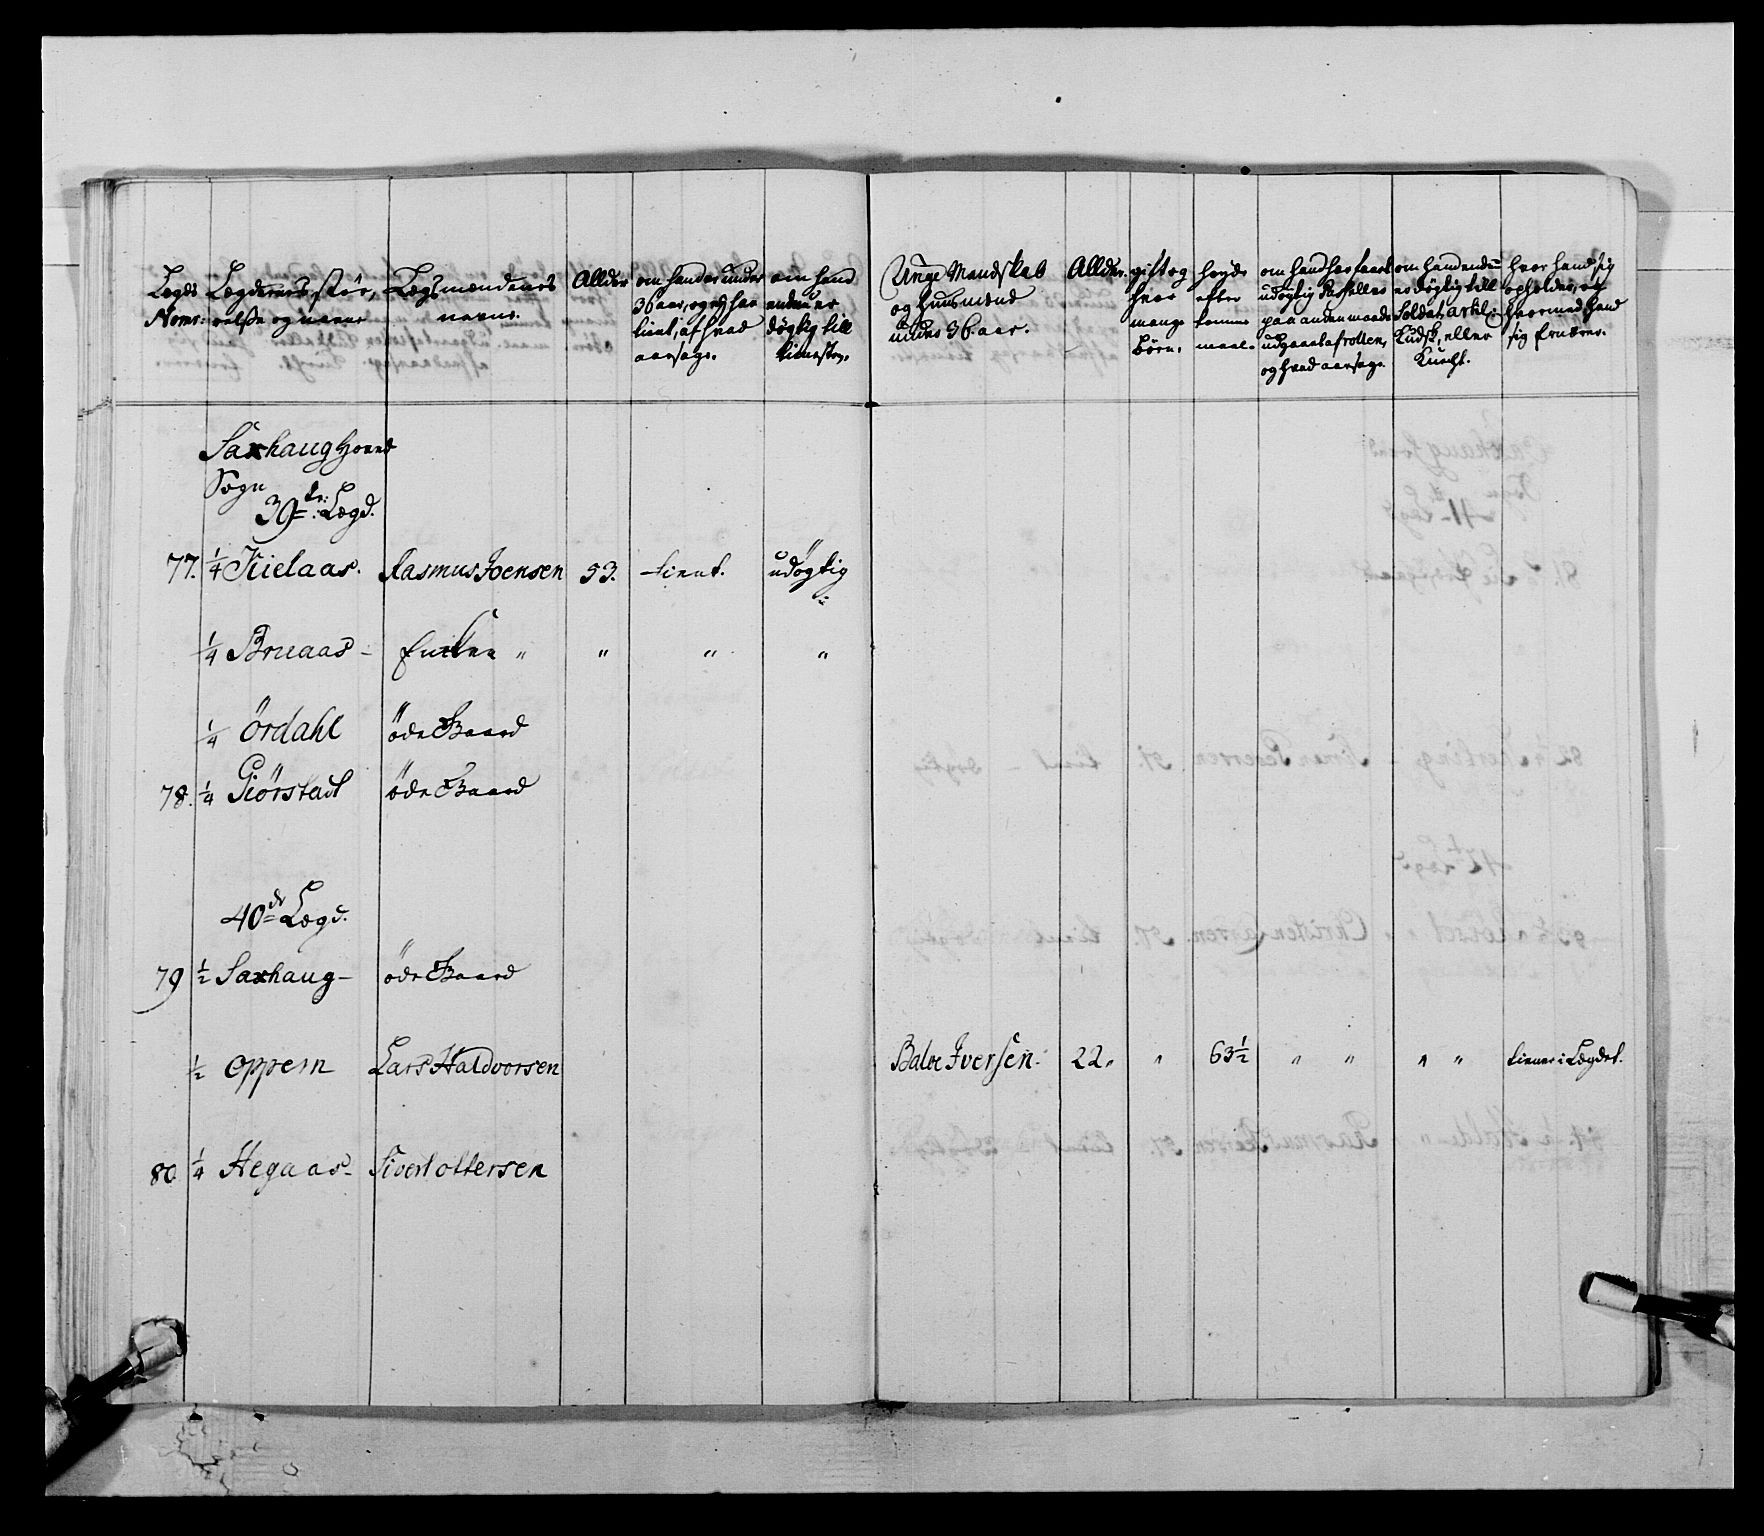 Legds Noms:
Lægdernes stør,
relse og navne
Lægsmændenes
navne.
Allder
om hand er under
36 aar, og ej har
tient, af hvad
aarsage.
om hand
endnu er
døgtig till
tienesten.
Unge Mandskab
og huusmænd
under 36 aar.
Allder.
gift og
hvor
mange
børn.
høyde
efter
komme
maal.
om hand har faaet
udøgtig Pas eller
paa anden maade
udgaaet af rollen,
og hvad aarsage.
om hand endnu
er døgtig till
Soldat, artil:
Kudsk, eller
Knecht.
hvor hand sig
opholder, og
hvormed hand
sig ernærer.
Saxhaug Hoved
Sogn
39te: Lægd.
77. 1/4 Kielaas. Rasmus Joensen 53. tient. udøgtig
1/4 Bruaas - Enken " " " "
1/4 Ördahl öde Gaard
78. 1/4 Giörstad öde Gaard
40de Lægd.
79 1/2 Saxhaug - öde Gaard
1/2 Oppem Lars Haldvorsen Baltze Iversen. 22. " 63 1/2 " " " " tiener i Lægdet.
80 1/4 Hegaas - Sivert Ottersen